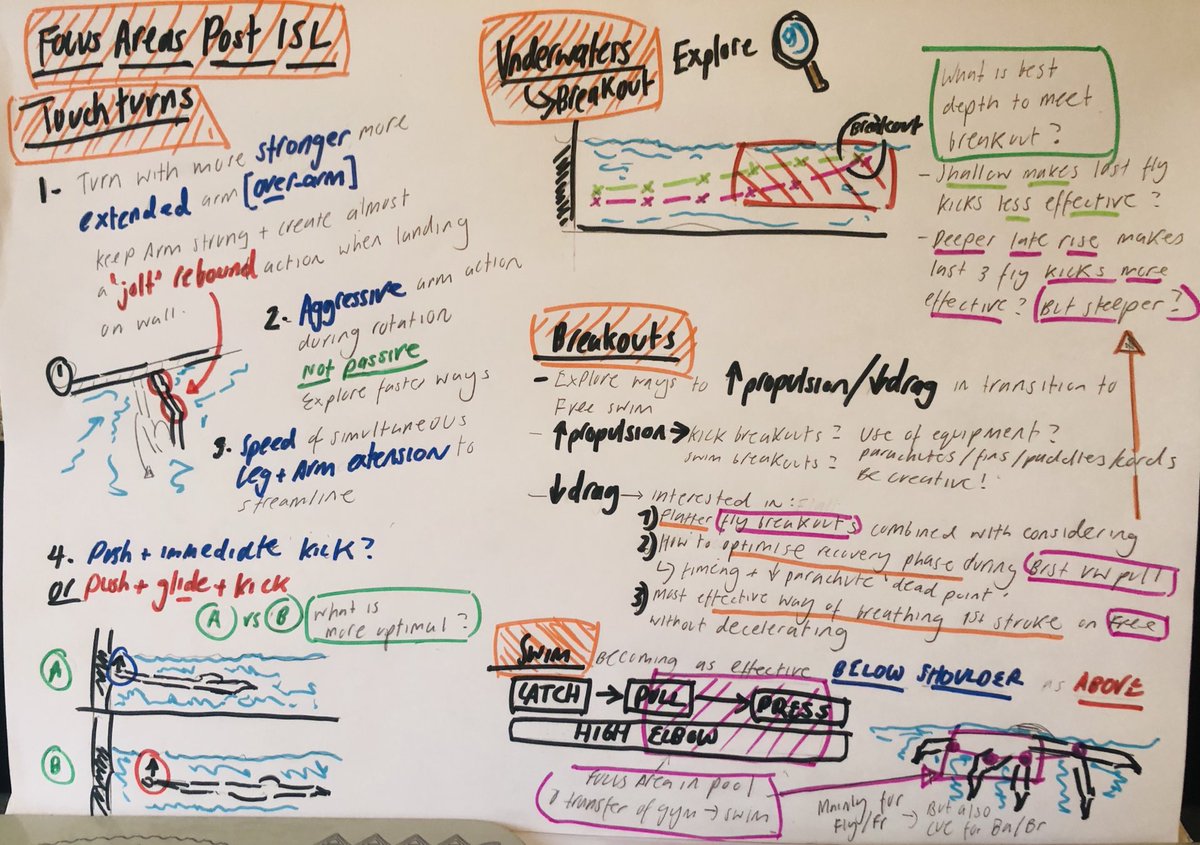 Focus Areas Post ISL
Touch turns
1- Turn with more stronger more
extended arm [over-arm]
keep Arm strong + create almost
a "jolt" rebound action when landing
on wall.
2. Aggressive arm action
during rotation
Not passive
Explore faster ways
3. Speed of simultaneous
Leg + Arm extension to
streamline
4. Push + immediate kick?
or push + glide + kick
A vs B
What is
more optimal?
A
B
Underwaters
↳ Breakout
Explore
Breakout
What is best
depth to meet
breakout?
- Shallow makes last fly
kicks less effective?
- Deeper late rise makes
last 3 fly kicks more
effective? But steeper?
Breakouts
- Explore ways to ↑propulsion/↓drag in transition to
Free swim
- ↑propulsion → kick breakouts? Use of equipment?
swim breakouts? parachutes/fins/paddles/kords
Be creative!
- ↓drag → interested in:
1) flatter fly breakouts combined with considering
2) How to optimise recovery phase during Brst uw pull
↳ timing + ↓ parachute 'dead point'
3) Most effective way of breathing 1st stroke on Free
without decelerating
Swim
Becoming as effective BELOW SHOULDER as ABOVE
CATCH → PULL → PRESS
HIGH ELBOW
Focus Area in pool
transfer of gym → swim
Mainly for
Fly/Fr → But also
CUE for Ba/Br